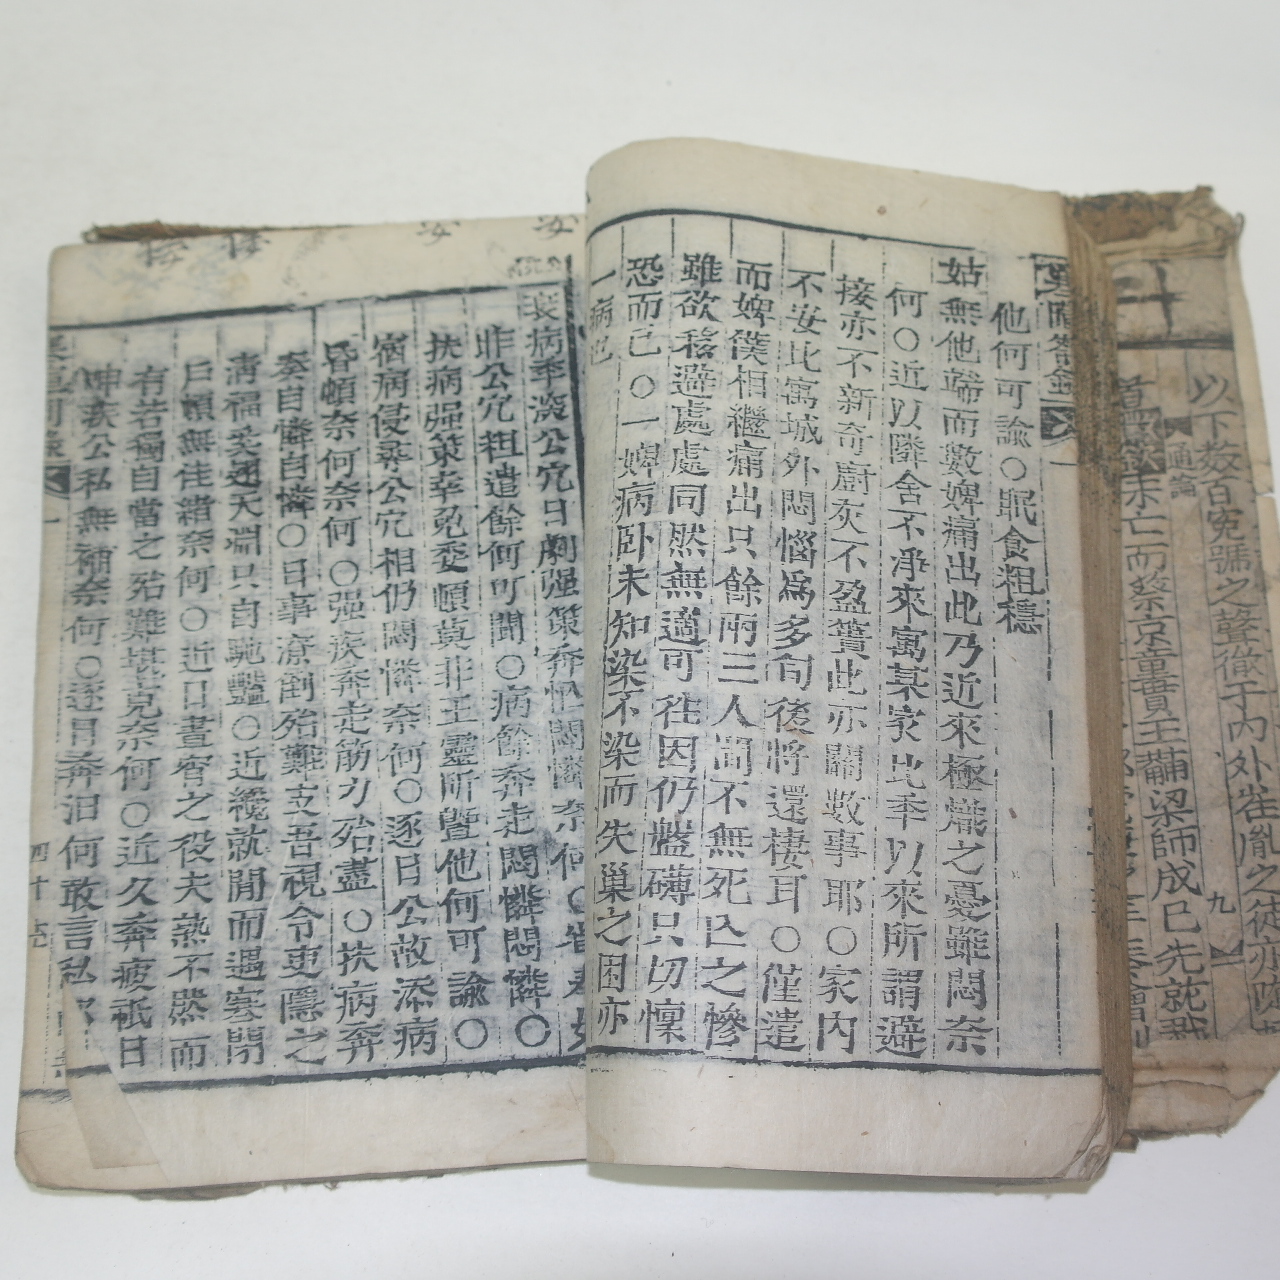 以下數百冤號之聲徹于內外崔胤之徒亦
通論
欽未亡而蔡京童貫王黼梁師成已先就戮
九
他何可諭○眠食粗穩
姑無他端而數婢痛出此乃近來極熾之憂雖悶奈
何○近以隣舍不淨來寓某家比季以來所謂避
接亦不新奇廚灰不盈簣此亦關數事耶○家內
不安比寓城外悶惱爲多旬後將還棲耳○僅遣
而婢僕相繼痛出只餘兩三人間不無死亾之慘
雖欲移避處處同然無適可往因仍盤礴只切懍
恐而已○一婢病卧未知染不染而失巢之困亦
一病也
衰病季澟公宂日劇强策奔忙悶憐奈何○
非公宂粗遣餘何可聞○病餘奔走悶憐悶憐○
扶病强策幸免委頓莫非王靈所曁他何可諭○
宿病侵尋公宂相仍悶憐奈何○逐日公故添病
昏頓奈何奈何○强疾奔走筋力殆盡○扶病奔
奏自憐自憐○日事潦倒殆難支吾視令吏隱之
淸福奚趐天淵只自馳艶○近纔就閒而遇寒閉
戶頓無佳緖奈何○近日晝宵之役夫孰不然而
有若獨自當之殆難堪克奈何○近久奔疲祇日
呻痰公私無補奈何○逐日奔汨何敢言私